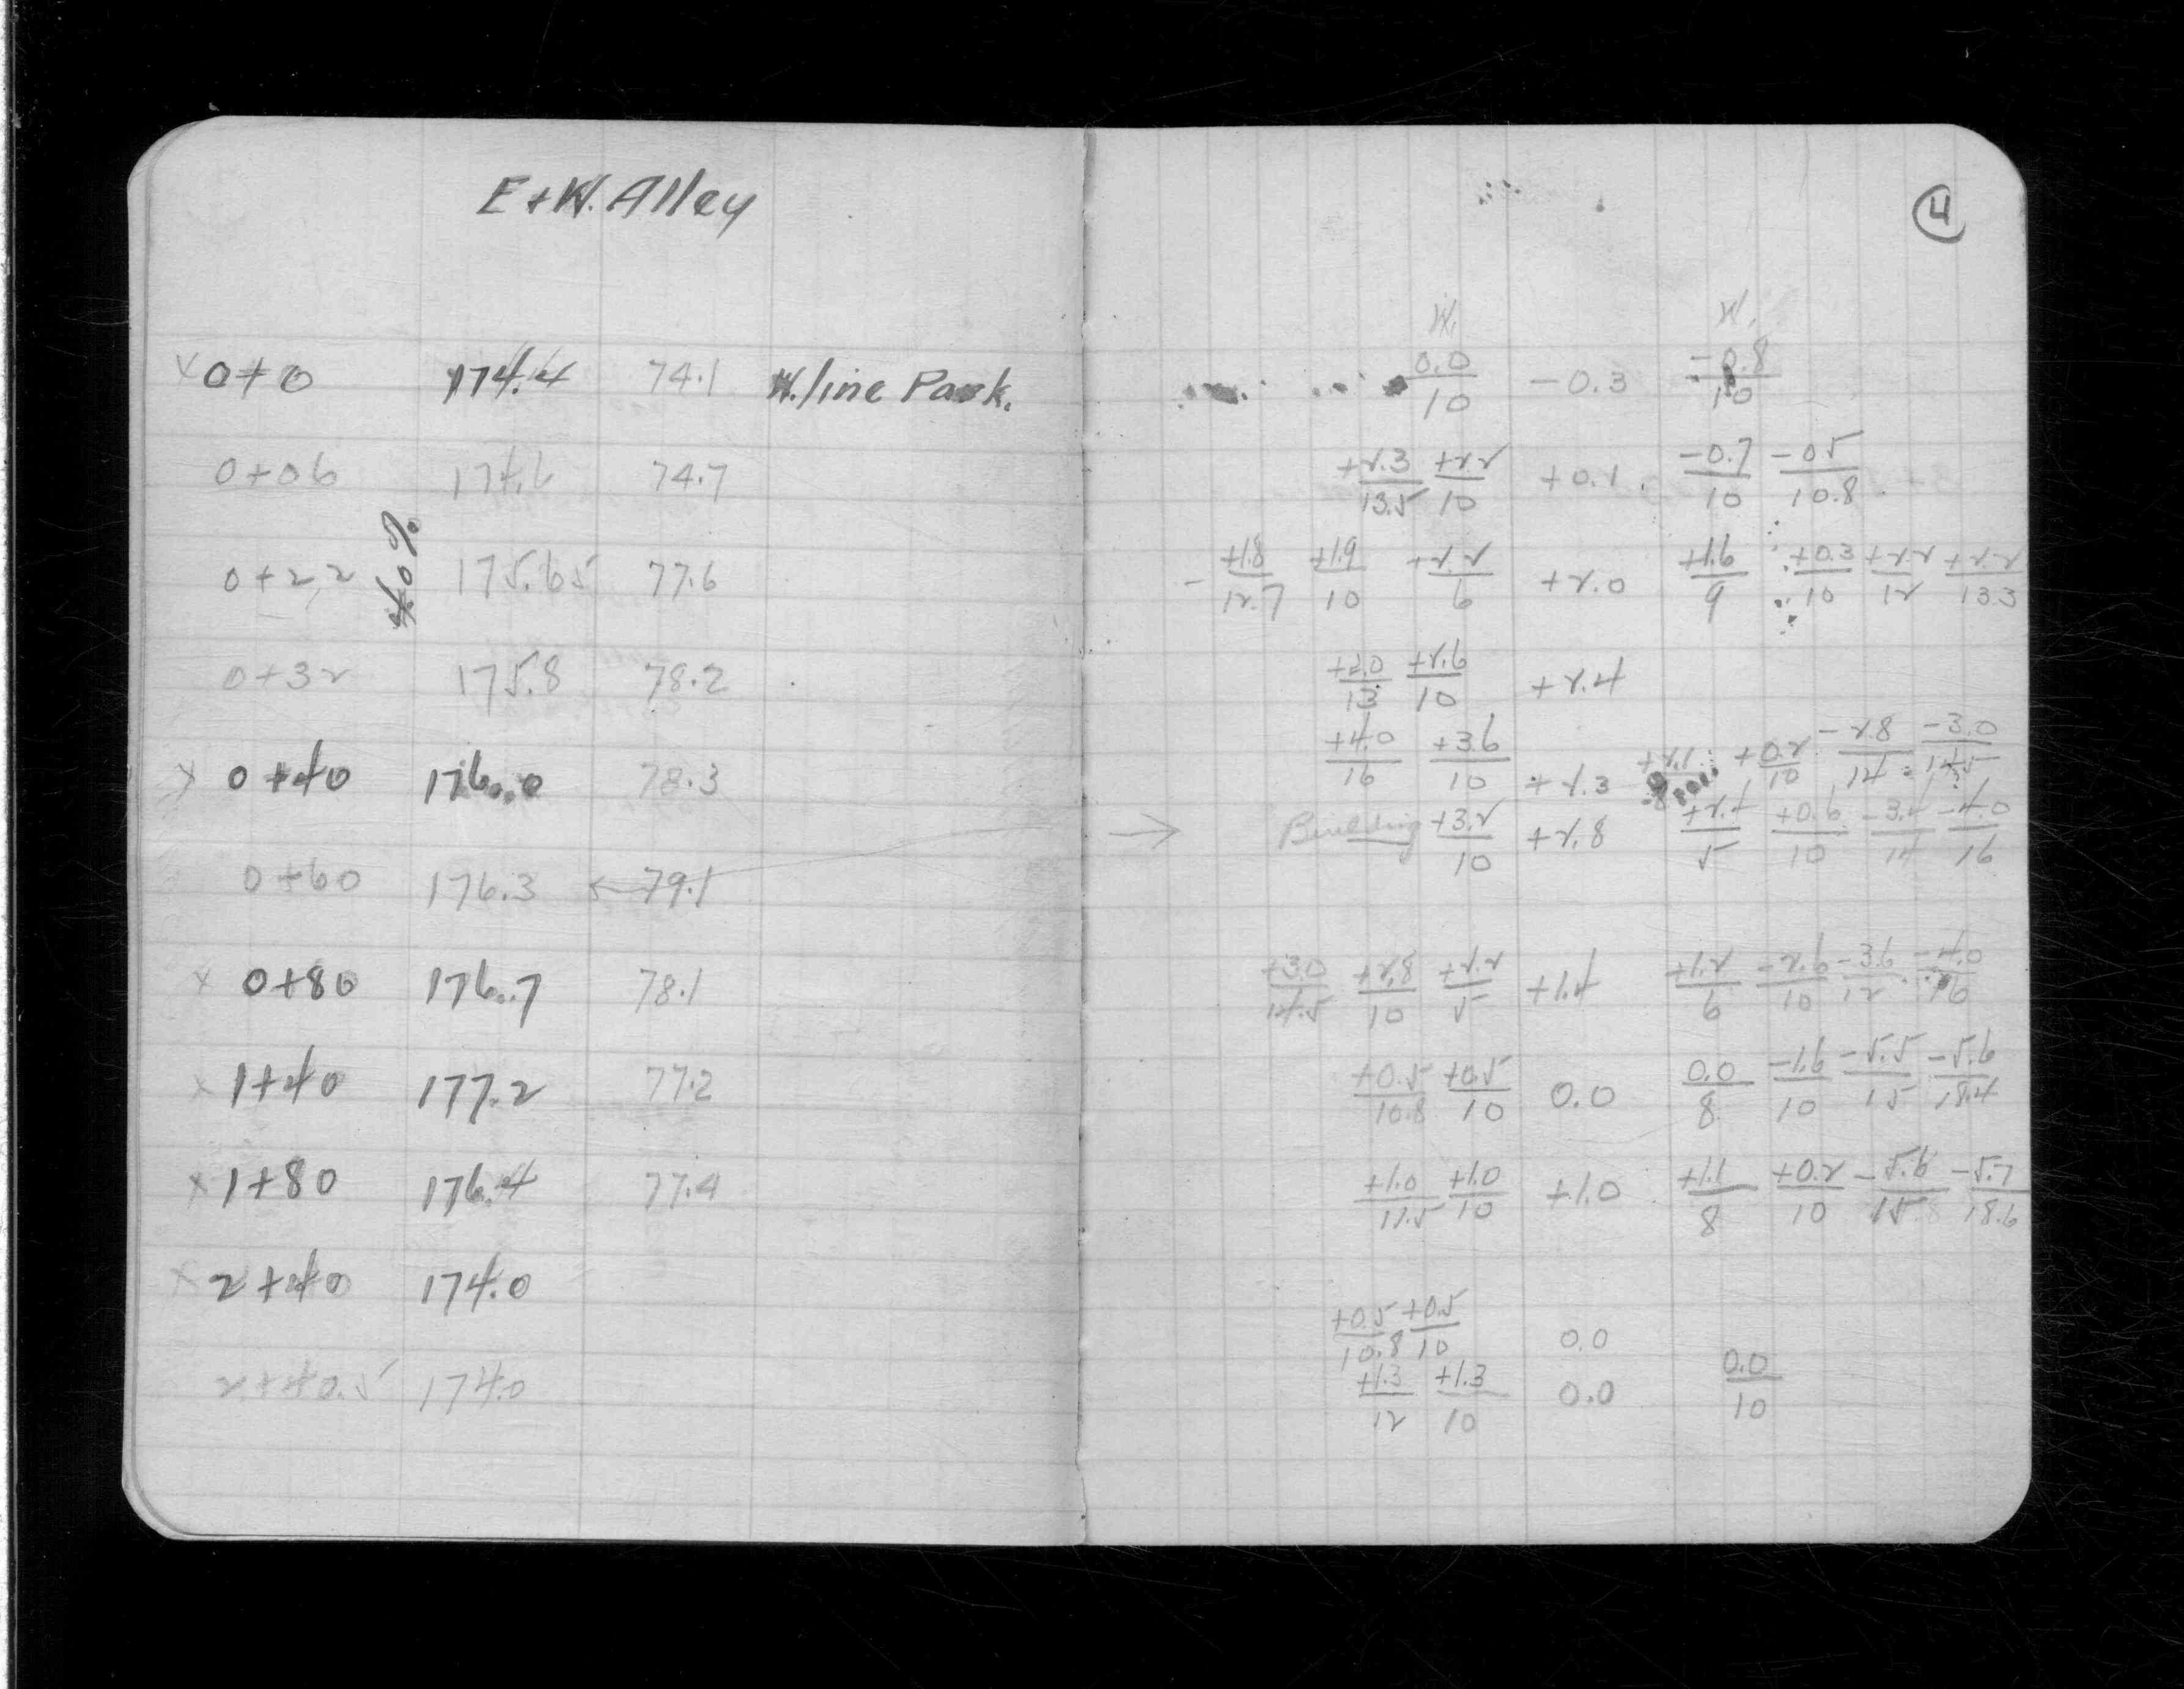 E + W. Alley
4
W. W.
x 0+0 174.4 74.1 W. line Park. 0.0/10 -0.3 -0.8/10
0+06 174.6 74.7 +2.3/13.5 +2.2/10 +0.1 -0.7/10 -0.5/10.8
4.0%
0+22 175.65 77.6 +1.8/12.7 +1.9/10 +2.2/6 +2.0 +1.6/9 +0.3/10 +2.2/12 +2.2/13.3
0+32 175.8 78.2 +2.0/13 +2.6/10 +2.4
x 0+40 176.0 78.3 +4.0/16 +3.6/10 +2.3 +2.1 +0.2/10 -2.8/14 -3.0/14.5
0+60 176.3 ← 79.1 → Building +3.2/10 +2.8 +2.4/5 +0.6/10 -3.4/14 -4.0/16
x 0+80 176.7 78.1 +3.0/14.5 +2.8/10 +2.2/5 +1.4 +1.2/6 -2.6/10 -3.6/12 -4.0/16
x 1+40 177.2 77.2 +0.5/10.8 +0.5/10 0.0 0.0/8 -1.6/10 -5.5/15 -5.6/18.4
x 1+80 176.4 77.4 +1.0/11.5 +1.0/10 +1.0 +1.1/8 +0.2/10 -5.6/15 -5.7/18.6
x 2+40 174.0 +0.5/10.8 +0.5/10 0.0
2+40.5 174.0 +1.3/12 +1.3/10 0.0 0.0/10